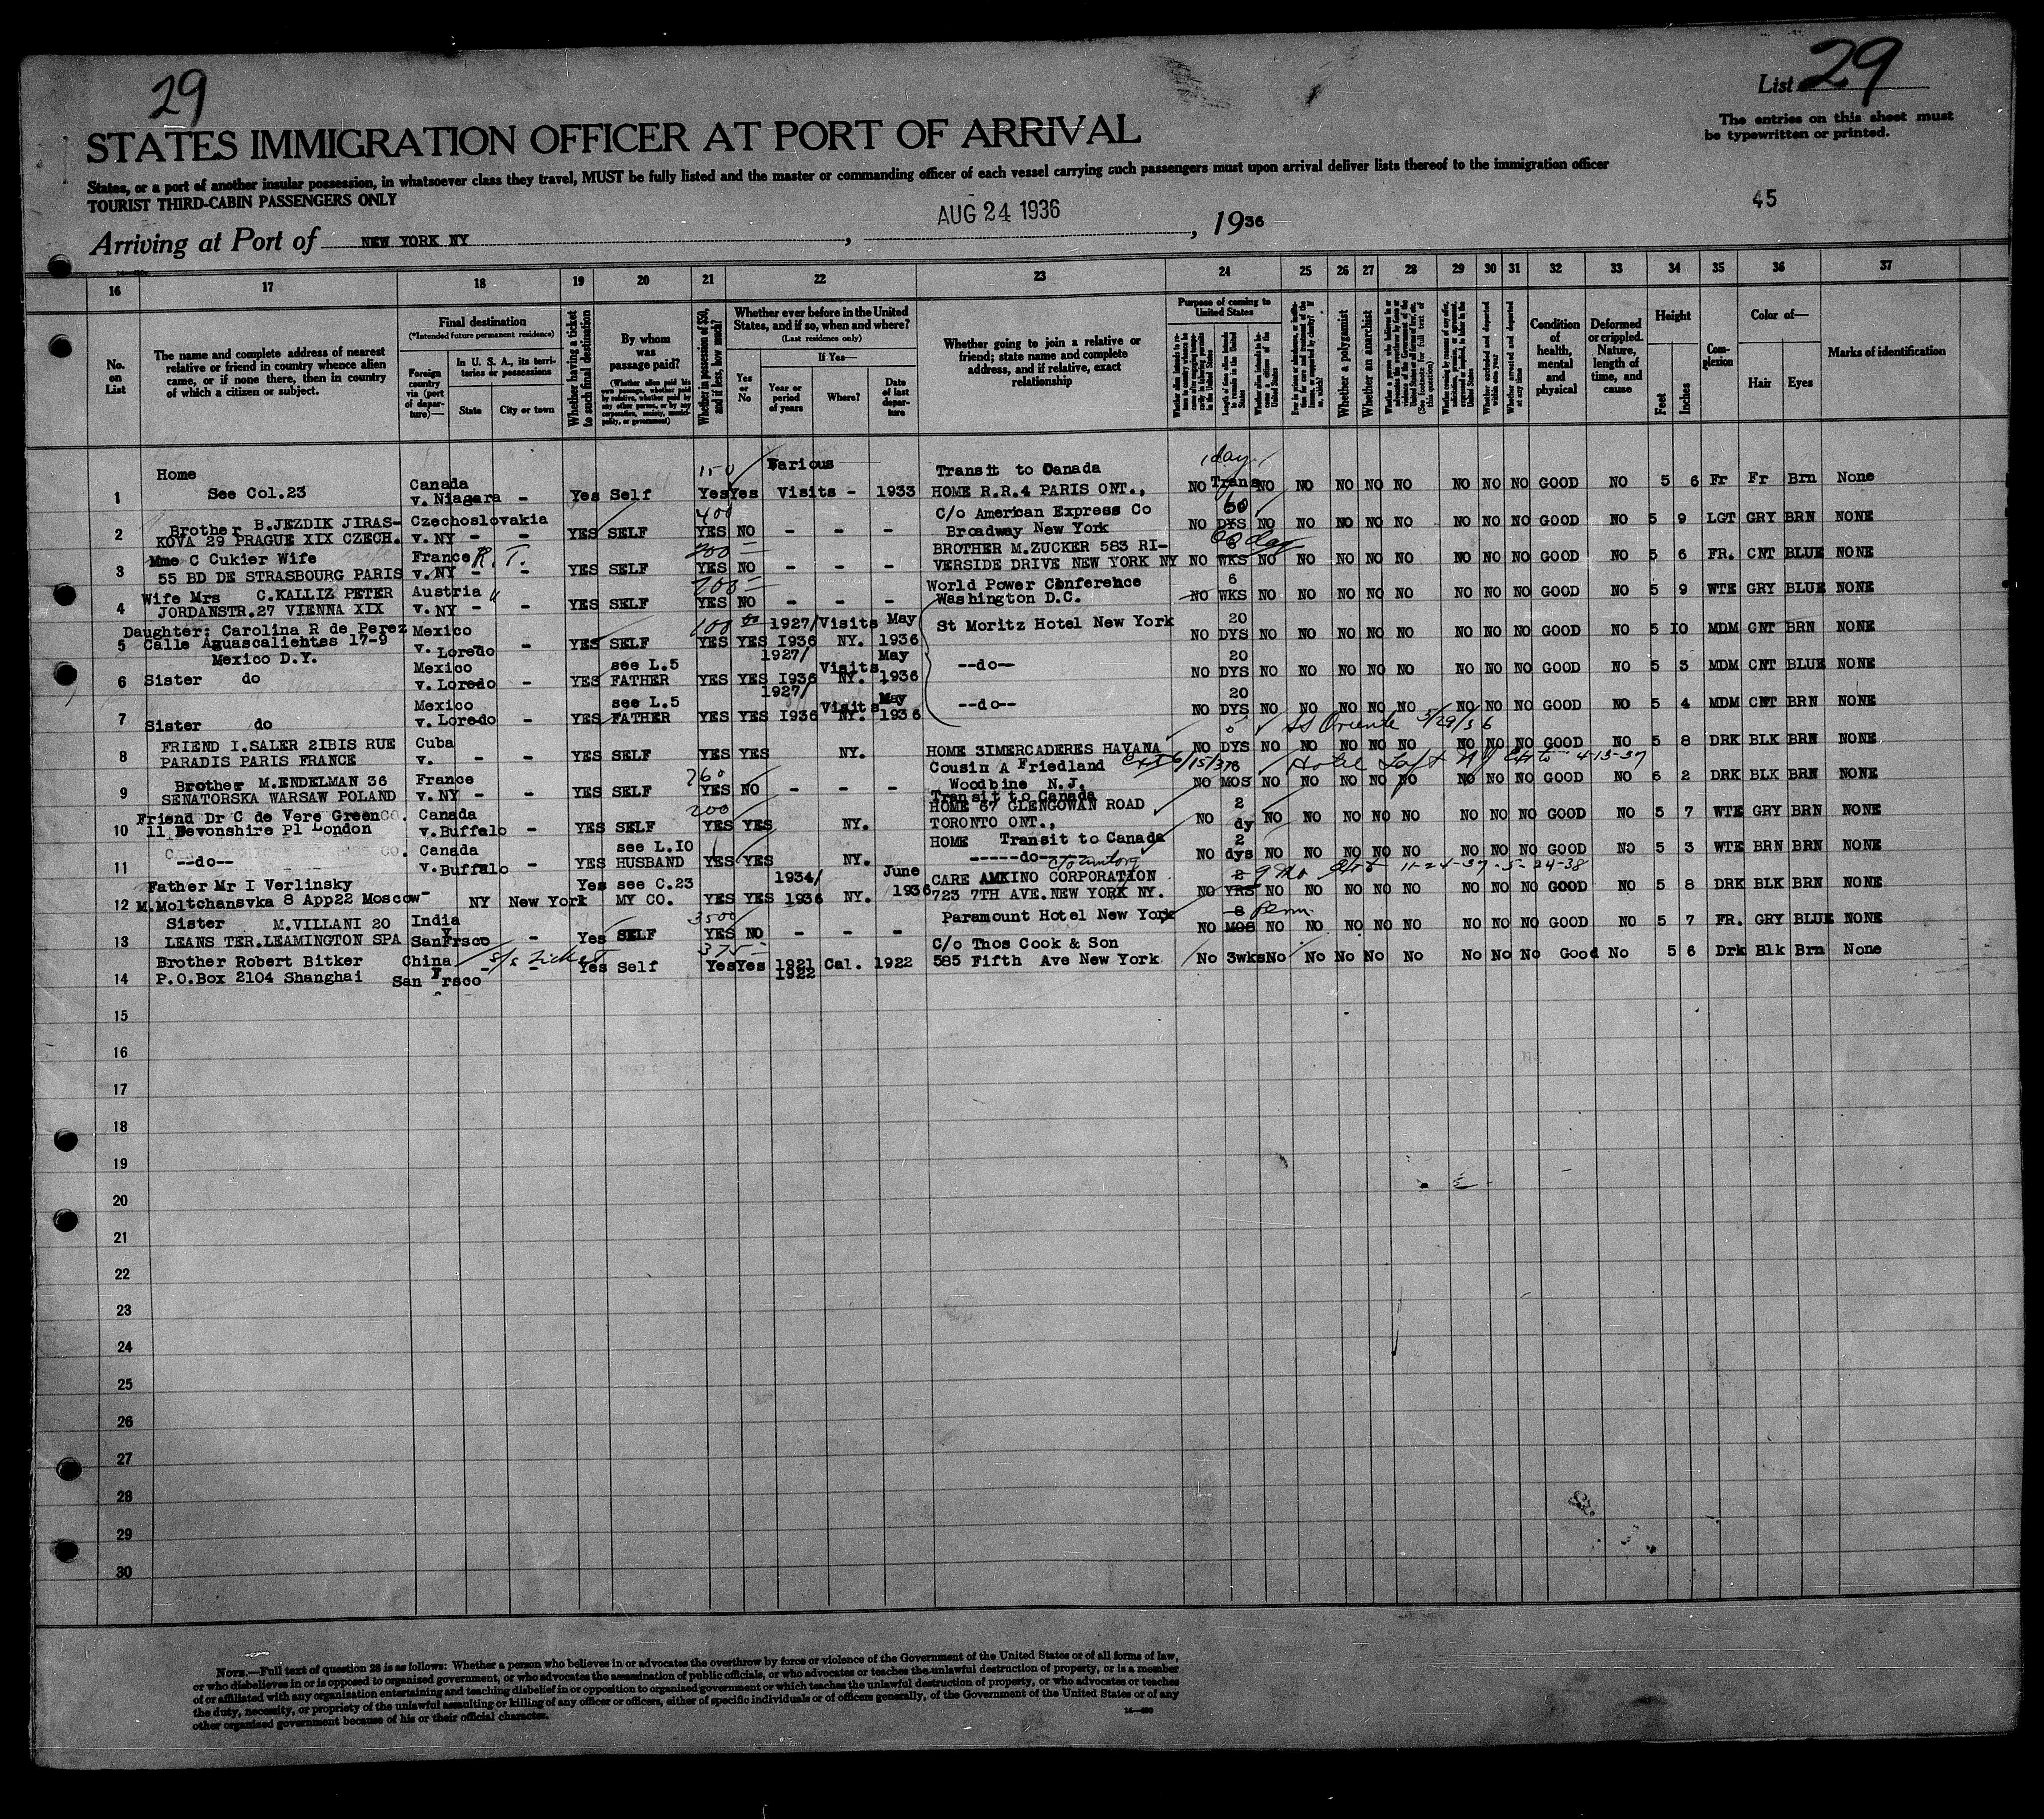 29
List 29
The entries on this sheet must
be typewritten or printed.
STATES IMMIGRATION OFFICER AT PORT OF ARRIVAL
States, or a port of another insular possession, in whatsoever class they travel, MUST be fully listed and the master or commanding officer of each vessel carrying such passengers must upon arrival deliver lists thereof to the immigration officer
TOURIST THIRD-CABIN PASSENGERS ONLY
45
Arriving at Port of NEW YORK NY, AUG 24 1936, 1936
16 17 18 19 20 21 22 23 24 25 26 27 28 29 30 31 32 33 34 35 36 37
No. on List
The name and complete address of nearest
relative or friend in country whence alien
came, or if none there, then in country
of which a citizen or subject.
Final destination
(*Intended future permanent residence)
Foreign country via (port of departure)—
In U. S. A., its territories or possessions
State
City or town
Whether having a ticket to such final destination
By whom was passage paid?
(Whether alien paid his own passage, whether paid by relative, whether paid by any other person, or by any corporation, society, municipality, or government)
Whether in possession of $50, and if less, how much?
Whether ever before in the United
States, and if so, when and where?
(Last residence only)
Yes or No
If Yes—
Year or period of years
Where?
Date of last departure
Whether going to join a relative or
friend; state name and complete
address, and if relative, exact
relationship
Purpose of coming to United States
Length of time alien intends to remain in the United States
Whether alien intends to become a citizen of the United States
Whether a polygamist
Whether an anarchist
(See footnote for full text of this question)
Whether excluded and deported within one year
Whether arrested and deported at any time
Condition of health, mental and physical
Deformed or crippled. Nature, length of time, and cause
Height
Feet
Inches
Complexion
Color of—
Hair
Eyes
Marks of identification
Home 150 Various Transit to Canada 1 day
1 See Col.23 Canada v. Niagara - Yes Self Yes Yes Visits - 1933 HOME R.R.4 PARIS ONT., NO Trans NO NO NO NO NO NO NO NO GOOD NO 5 6 Fr Fr Brn None
Brother B.JEZDIK JIRAS- Czechoslovakia 400 C/o American Express Co 60
2 KOVA 29 PRAGUE XIX CZECH. v. NY - - YES SELF YES NO - - - Broadway New York NO DYS NO NO NO NO NO NO NO NO GOOD NO 5 9 LGT GRY BRN NONE
Mme C Cukier Wife France R.T. 200 BROTHER M.ZUCKER 583 RI- 60 day
3 55 BD DE STRASBOURG PARIS v. NY - - YES SELF YES NO - - - VERSIDE DRIVE NEW YORK NY NO WKS NO NO NO NO NO NO NO NO GOOD NO 5 6 FR. CNT BLUE NONE
Wife Mrs C.KALLIZ PETER Austria " 200 World Power Conference 6
4 JORDANSTR.27 VIENNA XIX v. NY - - YES SELF YES NO - - - Washington D.C. NO WKS NO NO NO NO NO NO NO NO GOOD NO 5 9 WTE GRY BLUE NONE
Daughter: Carolina R de Perez Mexico 100 1927/ Visits May St Moritz Hotel New York 20
5 Calle Aguascalientes 17-9 v. Loredo - YES SELF YES YES I936 NY. 1936 NO DYS NO NO NO NO NO NO NO NO GOOD NO 5 IO MDM CNT BRN NONE
Mexico D.Y. Mexico see L.5 1927/ Visits May --do-- 20
6 Sister do v. Loredo - YES FATHER YES YES I936 NY. 1936 NO DYS NO NO NO NO NO NO NO NO GOOD NO 5 3 MDM CNT BLUE NONE
Mexico see L.5 1927/ Visits May --do-- 20
7 Sister do v. Loredo - YES FATHER YES YES I936 NY. 1936 NO DYS NO NO NO NO NO NO NO NO GOOD NO 5 4 MDM CNT BRN NONE
FRIEND I.SALER 2IBIS RUE Cuba 5 SS Oriente
8 PARADIS PARIS FRANCE v. - - YES SELF YES YES NY. HOME 3IMERCADERES HAVANA NO DYS NO NO NO NO NO NO NO NO GOOD NO 5 8 DRK BLK BRN NONE
Brother M.ENDELMAN 36 France 260 Cousin A Friedland 6 Hotel Taft NY 4-13-37
9 SENATORSKA WARSAW POLAND v. NY - - YES SELF YES NO - - - Woodbine N.J. NO MOS NO NO NO NO NO NO NO NO GOOD NO 6 2 DRK BLK BRN NONE
Transit to Canada
Friend Dr C de Vere Green Canada 200 HOME 67 GLENGOWAN ROAD 2
10 11 Devonshire Pl London v. Buffalo - YES SELF YES YES NY. TORONTO ONT., NO dy NO NO NO NO NO NO NO NO GOOD NO 5 7 WTE GRY BRN NONE
Canada see L.IO HOME Transit to Canada 2
11 --do-- v. Buffalo - YES HUSBAND YES YES NY. -----do----- NO dys NO NO NO NO NO NO NO NO GOOD NO 5 3 WTE BRN BRN NONE
Father Mr I Verlinsky Yes see C.23 1934/ June CARE AMKINO CORPORATION 2 9 mo 11-24-37 - 5-24-38
12 M.Moltchansvka 8 App22 Moscow NY New York MY CO. YES YES 1936 NY. 1936 723 7TH AVE.NEW YORK NY. NO YRS NO NO NO NO NO NO NO NO GOOD NO 5 8 DRK BLK BRN NONE
Sister M.VILLANI 20 India 3500 Paramount Hotel New York 8 Perm
13 LEANS TER.LEAMINGTON SPA v SanFrsco - Yes SELF YES NO - - - NO MOS NO NO NO NO NO NO NO NO GOOD NO 5 7 FR. GRY BLUE NONE
Brother Robert Bitker China S/S Ticket 375 C/o Thos Cook & Son
14 P.O.Box 2104 Shanghai San Frsco - - Yes Self Yes Yes 1921 1922 Cal. 1922 585 Fifth Ave New York No 3wks No No No No No No No No Good No 5 6 Drk Blk Brn None
15
16
17
18
19
20
21
22
23
24
25
26
27
28
29
30
NOTE.—Full text of question 28 is as follows: Whether a person who believes in or advocates the overthrow by force or violence of the Government of the United States or of all forms of law,
or who disbelieves in or is opposed to organized government, or who advocates the assassination of public officials, or who advocates or teaches the unlawful destruction of property, or is a member
of or affiliated with any organization entertaining and teaching disbelief in or opposition to organized government or which teaches the unlawful destruction of property, or who advocates or teaches
the duty, necessity, or propriety of the unlawful assaulting or killing of any officer or officers, either of specific individuals or of officers generally, of the Government of the United States or of any
other organized government because of his or their official character.